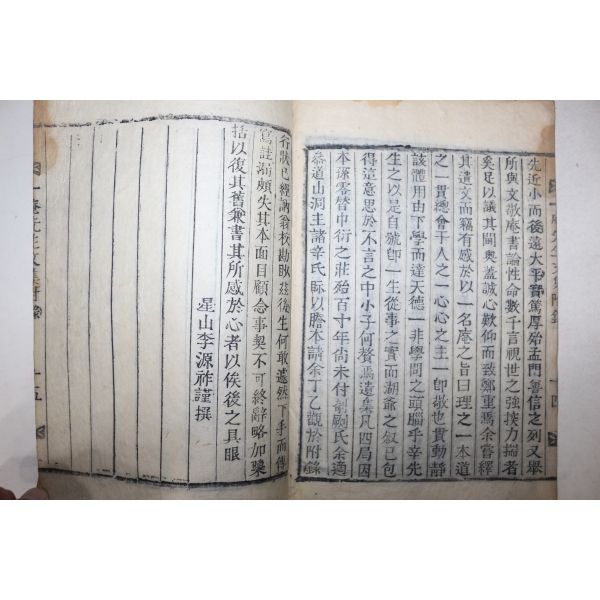 先近小而後遠大平實篤厚殆孟門粵信之列又舉
所與文敬庵書論性命數千言視世之強揬力揣者
奚足以議其閫奧盖誠心歎仰而致鄭重焉余嘗繹
其遺文而竊有感於以一名庵之旨曰理之一本道
之一貫總會于人之一心心之主一卽敬也貫動靜
該體用由下學而達天德一非學問之頭腦乎辛先
生之以是自號卽一生從事之實而湖爺之叙已包
得這意思於不言之中小子何贅焉遺集凡四局因
本孫零替中衍之莊殆百十年尙未付剞劂氏余適
忝道山洞主諸辛氏眎以謄本請余丁乙觀於附錄
行狀已經訥翁校勘眇玆後生何敢遽然下手而傳
寫註漏頗失其本面目顧念事契不可終辭略加櫽
括以復其舊兼書其所感於心者以俟後之具眼
星山李源祚謹撰
一庵先生文集附錄
十四
一庵先生文集附錄
十五